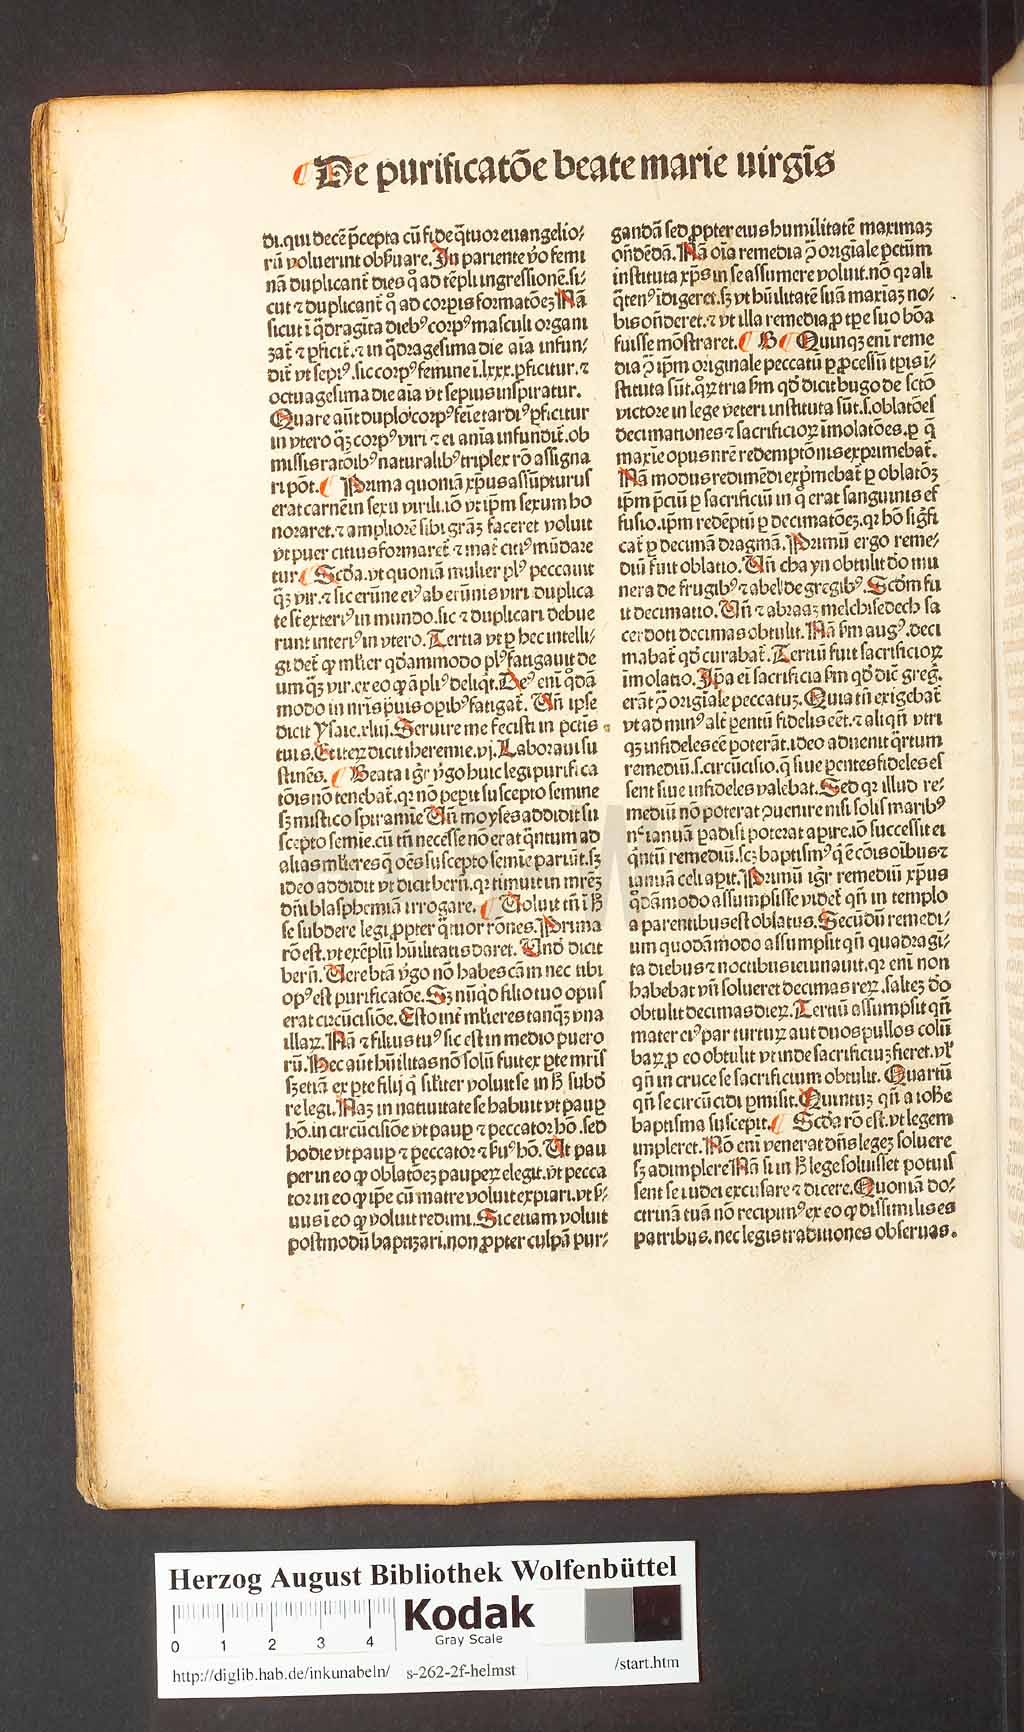 De purificatōe beate marie uirgīs
di. qui decē p̄cepta cū fide q̄tuor euangelio⸗
rū voluerint obẜuare. In pariente v̄o femi
nā duplicant̄ dies q̄ ad tēpli ingressionē. si⸗
cut ⁊ duplicant̄ q̄ ad corpis formatōeʒ Nā
sicut ī q̄dragīta diebꝰ corpꝰ masculi organi
zat̄ ⁊ ꝑficit̄. ⁊ in q̄dragesima die aīa infun⸗
dit̄ vt sepiꝰ. sic corpꝰ femine ī. lxxx. ꝑficitur. ⁊
octuagesima die aīa vt sepius inspiratur.
Quare aūt duplo corpꝰ feīe tardiꝰ ꝑficitur
in vtero q̄ʒ corpꝰ viri ⁊ ei anīa infundit̄. ob
missis ratōibꝰ naturalibꝰ triplex rō assigna
ri pōt. Prima quoniā xp̄us assūpturus
erat carnē in sexu virili. iō vt ip̄m sexum ho
noraret. ⁊ ampliorē sibi grāʒ faceret voluit
vt puer citius formaret̄ ⁊ mat̄ citiꝰ mūdare
tur. Scd̄a. vt quoniā mulier plꝰ peccauit
q̄ʒ vir. ⁊ sic erūne eiꝰ ab erūnis viri duplica
te st̄ exteriꝰ in mundo. sic ⁊ duplicari debue
runt interiꝰ in vtero. Tertia vt ꝑ hec intelli⸗
gi det̄ ꝙ mĺier qd̓ammodo plꝰ fatigauit de
um q̄ʒ vir. ex eo ꝙ āpliꝰ deliq̄t. Deꝰ eni q̄dā
modo in nrīs p̄uis opibꝰ fatigat̄. Un̄ ipse
dicit ysaie. xliij. Seruire me fecisti in pctīs
tuis. Et iteꝝ dicit iheremie. vj. Laboraui su
stinēs. Beata igr̄ v̓go huic legi purifica
tōis nō tenebat̄. qr nō pepit suscepto semine
sʒ mistico spiramīe Un̄ moyses addidit su
scepto semīe. cū tn̄ necesse nō erat q̄ntum ad
alias mĺieres q̄ oēs suscepto semīe pariūt. sʒ
ideo addidit vt dicit bern̄. qr timuit in mr̄eʒ
dn̄i blasphemiā irrogare. Uoluit tn̄ ī ħ
se subdere legi ꝓpter q̄tuor rōnes. Prima
rō est. vt exēplū hūilitatis daret. Und̓ dicit
bern̄. Uere btā v̓go nō habes cām nec tibi
opꝰ est purificatōe. Sʒ nūqd̓ filio tuo opus
erat circūcisiōe. Esto int̄ mĺieres tanq̄ʒ vna
illaꝝ. Nā ⁊ filius tuꝰ sic est in medio puero
rū. Hec aūt hūilitas nō solū fuit ex ꝑte mr̄is
sʒ etiā ex ꝑte filij q̄ siĺiter voluit se in ħ subd̓
re legi. Naʒ in natiuitate se habuit vt pauꝑ
hō. in circūcisiōe vt pauꝑ ⁊ peccator hō. sed
hodie vt pauꝑ ⁊ peccator ⁊ ẜuꝰ hō. Ut pau
per in eo ꝙ oblatōeʒ paupeꝝ elegit. vt pecca
tor in eo ꝙ ip̄e cū matre voluit expiari. vt ẜ⸗
uus ī eo ꝙ voluit redimi. Sic etiam voluit
postmodū baptizari. non ꝓpter culpā pur⸗
gandā sed ꝓpter eius humilitatē maximaʒ
on̄dēdā. Nā oīa remedia ꝯ̄ origīale pctūm
instituta xp̄s in se assumere voluit. nō qr ali
q̄tenꝰ īdigeret. sʒ vt hūilitatē suā maxīaʒ no⸗
bis on̄deret. ⁊ vt illa remedia ꝓ tꝑe suo bōa
fuisse mōstraret. B Quinqʒ enī reme
dia ꝯ̄ ip̄m originale peccatū ꝑ ꝓcessū tꝑis ī⸗
stituta sūt. qꝝ tria ẜm qd̓ dicit hugo de sctō
victore in lege veteri instituta sūt. s. oblatōes
decimationes ⁊ sacrificioꝝ imolatōes. ꝑ q̄
maxie opus nrē redemptōnis exprimebat̄.
Nā modus redimēdi exp̄mebat̄ ꝑ oblatōʒ
ip̄m p̄ciū ꝑ sacrificiū in q̄ erat sanguinis ef
fusio. ip̄m redēptū ꝑ decimatōeʒ. qr hō sigfi
cat̄ ꝑ decimā dragmā. Primū ergo reme⸗
diū fuit oblatio. Un̄ chayn obtulit dō mu
nera de frugibꝰ ⁊ abel de gregibꝰ. Scd̓m fu
it decimatio. Un̄ ⁊ abraaʒ melchisedech sa
cerdoti decimas obtulit. Nā ẜm augꝰ. deci
mabat̄ qd̓ curabat̄. Tertiū fuit sacrificioꝝ
īmolatio. Ip̄a eī sacrificia ẜm qd̓ dic̄ greg̓.
erāt ꝯ̄ origīale peccatuʒ. Quia tn̄ exigebat̄
vt ad minꝰ alt̄ pentū fidelis eēt. ⁊ aliqn̄ vtri
qʒ infideles eē poterāt. ideo aduenit q̄rtum
remediū. s. circūcisio. q̄ siue pentes fideles es
sent siue infideles valebat. Sed qr illud re⸗
mediū nō poterat ꝯuenire nisi solis maribꝰ
nc̄ ianuā padisi poterat apire. iō successit ei
q̄ntū remediū. scʒ baptismꝰ q̄ ē cōis oībus ⁊
ianuā celi apit. Primū igr̄ remediū xp̄us
q̄dāmodo assumpsisse videt̄ qn̄ in templo
a parentibus est oblatus. Secūdū remedi⸗
um quodāmodo assumpsit qn̄ quadragī⸗
ta diebus ⁊ noctibus ieiunauit. qr enī non
habebat vn̄ solueret decimas reꝝ. salteʒ d̓o
obtulit decimas dieꝝ. Tertiū assumpsit qn̄
mater eiꝰ par turtuꝝ aut duos pullos colū
baꝝ ꝓ eo obtulit vt inde sacrificiuʒ fieret. vĺ
qn̄ in cruce se sacrificium obtulit. Quartū
qn̄ se circūcidi ꝑmisit. Quintuʒ qn̄ a iohe
baptisma suscepit. Scd̓a rō est. vt legem
impleret. Nō enī venerat dn̄s legeʒ soluere
sʒ adimplere Nā si in ħ lege soluisset potuis
sent se iudei excusare ⁊ dicere. Quoniā do⸗
ctrinā tuā nō recipimꝰ ex eo ꝙ dissimilis es
patribus. nec legis traditiones obseruas.
Herzog August Bibliothek Wolfenbüttel
Kodak
Gray Scale
0 1 2 3 4
http://diglib.hab.de/inkunabeln/ s-262-2f-helmst /start.htm